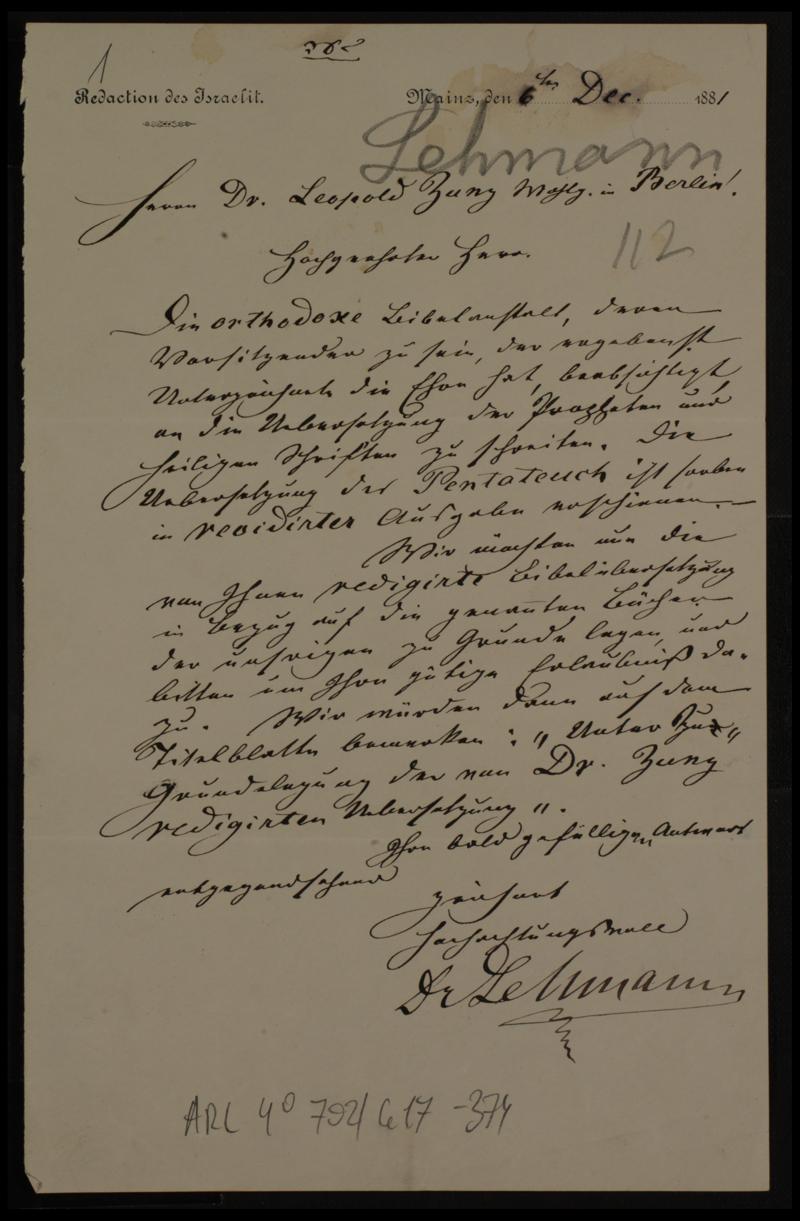 1
Redaction des Israelit.
Mainz, den 6ten Dec. 1881
Lehmann
Herrn Dr. Leopold Zunz Wohlg. in Berlin!
112
Hochgeehrter Herr.
Die orthodoxe Bibelanstalt, deren
Vorsitzender zu sein, der ergebenst
Unterzeichnete die Ehre hat, beabsichtigt,
an die Uebersetzung der Propheten und
heiligen Schriften zu schreiten. Die
Uebersetzung des Pentateuch ist soeben
in revidirter Ausgabe erschienen. —
Wir möchten nun die
von Ihnen redigirte Bibelübersetzung
in Bezug auf die genannten Bücher
der unsrigen zu Grunde legen, und
bitten um Ihre gütige Erlaubniß da-
zu. Wir würden dann auf dem
Titelblatte bemerken: „Unter
Grundelegung der von Dr. Zunz
redigirten Uebersetzung".
Ihre bald gefälligen Antwort
entgegensehend
zeichnet
hochachtungsvoll
Dr Lehmann
ARC 4° 792/G17-374